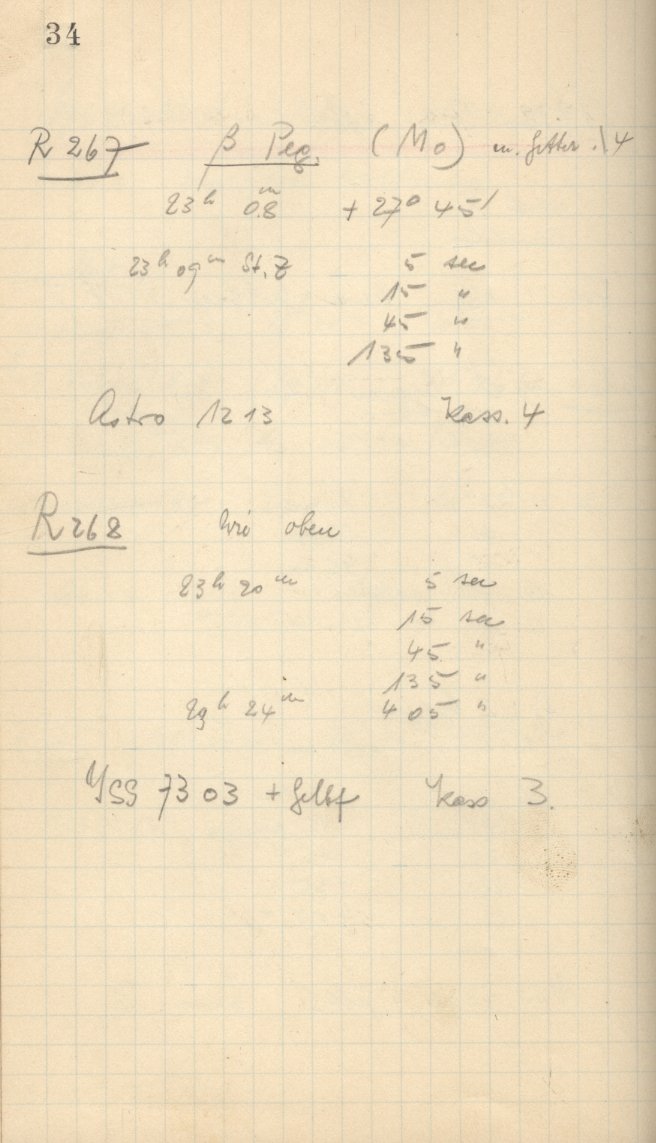 34
R 267 β Peg. (Mo) m. Gitter 4
23h 0.8m + 27° 45'
23h 09m St. Z 5 sec
15 "
45 "
135 "
Astro 1213 Kass. 4
R 268 Wie oben
23h 20m 5 sec
15 sec
45 "
135 "
23h 24m 405 "
7303 + Gelbf Kass 3.